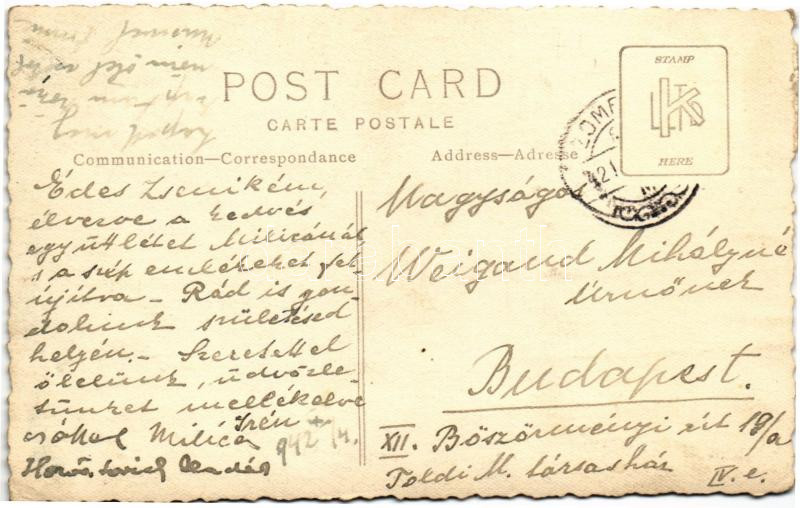 POST CARD
CARTE POSTALE
Communication—Correspondance
Address—Adresse
STAMP
HERE
Édes Zsenikém,
élvezve a kedves
együttlétet Milicánál
s a szép emlékeket fel-
újítva – Rád is gon-
dolunk születésed
helyén. – Szeretettel
ölelünk, üdvözle-
tünket mellékelve
csókol Milica Irén
942
Nagyságos
Weigand Mihályné
Úrnőnek
Budapest.
XII. Böszörményi út 18/a
Toldi M. társasház
IV. e.